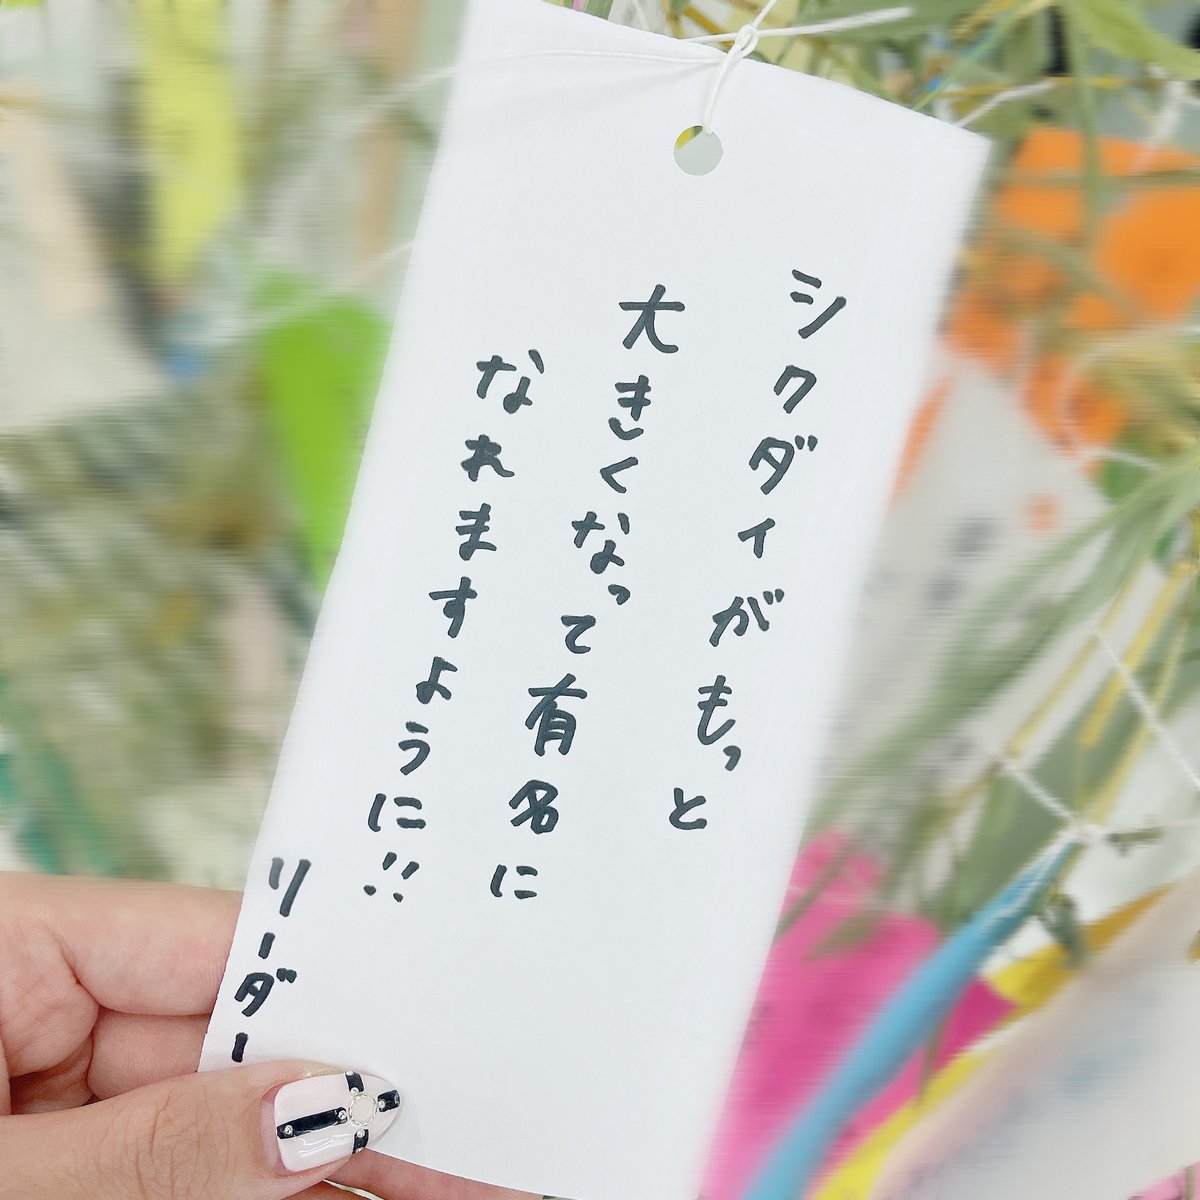 シクダイがもっと
大きくなって有名に
なれますように!!
リーダー